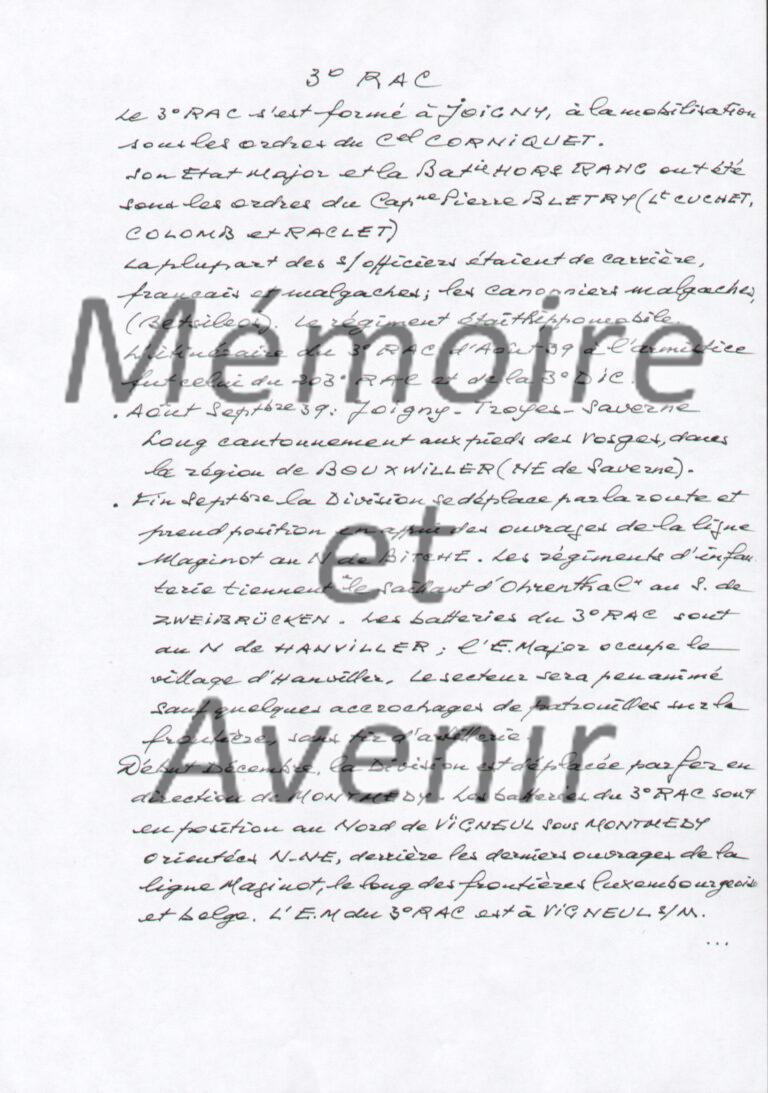 3° RAC
Le 3° RAC s'est formé à JOIGNY, à la mobilisation
sous les ordres du Cel CORNIQUET.
Son Etat Major et la Batie HORS RANG ont été
sous les ordres du Capne Pierre BLETRY (Lt CUCHET,
COLOMB et RACLET)
La plupart des s/officiers étaient de carrière,
français et malgaches; les canonniers malgaches,
(Betsileos). Le régiment était hippomobile
L'itinéraire du 3° RAC d'Août 39 à l'armistice
fut celui du 203° RAC et de la 3° DIC.
. Août Septbre 39: Joigny - Troyes - Saverne
Long cantonnement aux pieds des Vosges, dans
la région de BOUXWILLER (NE de Saverne).
. Fin Septbre la Division se déplace par la route et
prend position en appui des ouvrages de la ligne
Maginot au N de BITCHE. Les régiments d'infan
terie tiennent "le Saillant d'Ohrenthal" au S. de
ZWEIBRÜCKEN. Les batteries du 3° RAC sont
au N de HANVILLER; l'E.Major occupe le
village d'Hanviller. Le secteur sera peu animé
sauf quelques accrochages de patrouilles sur la
frontière, sans tir d'artillerie.
Début Décembre, la Division est déplacée par fer en
direction de MONTMEDY. Les batteries du 3° RAC sont
en position au Nord de VIGNEUL sous MONTMEDY
orientées N-NE, derrière les derniers ouvrages de la
ligne Maginot, le long des frontières luxembourgeoise
et belge. L'E.M du 3° RAC est à VIGNEUL s/M.
...
Mémoire
et
Avenir